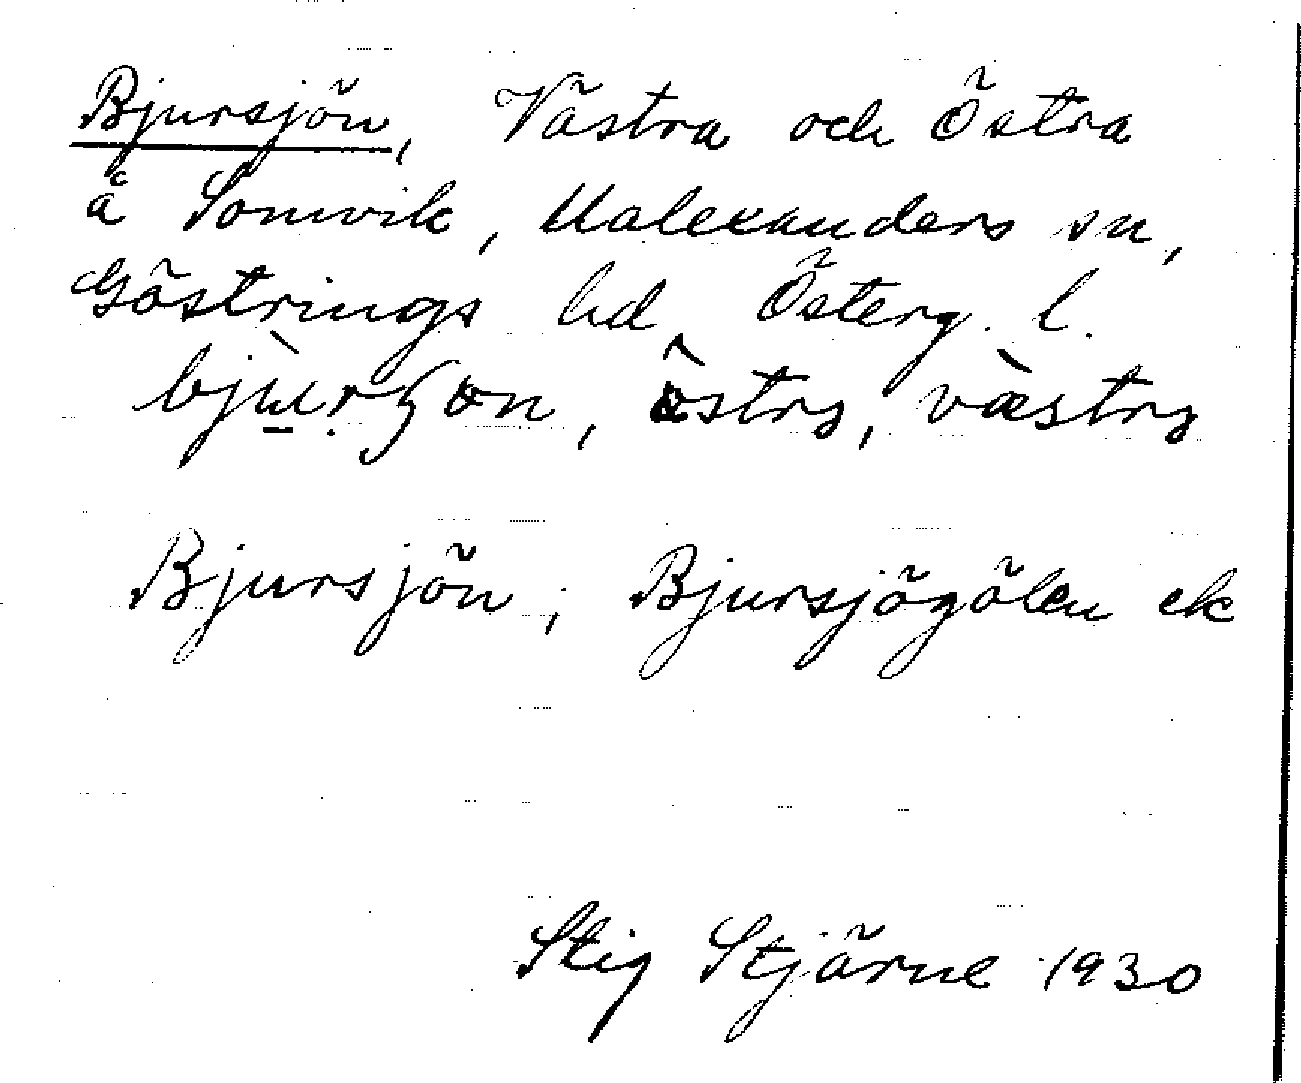 Bjursjön, Västra och Östra
å Somvik, Malexanders sn,
Göstrings hd Österg. l.
Bjursjön, Bjursjögölen ek
Stig Stjärne 1930